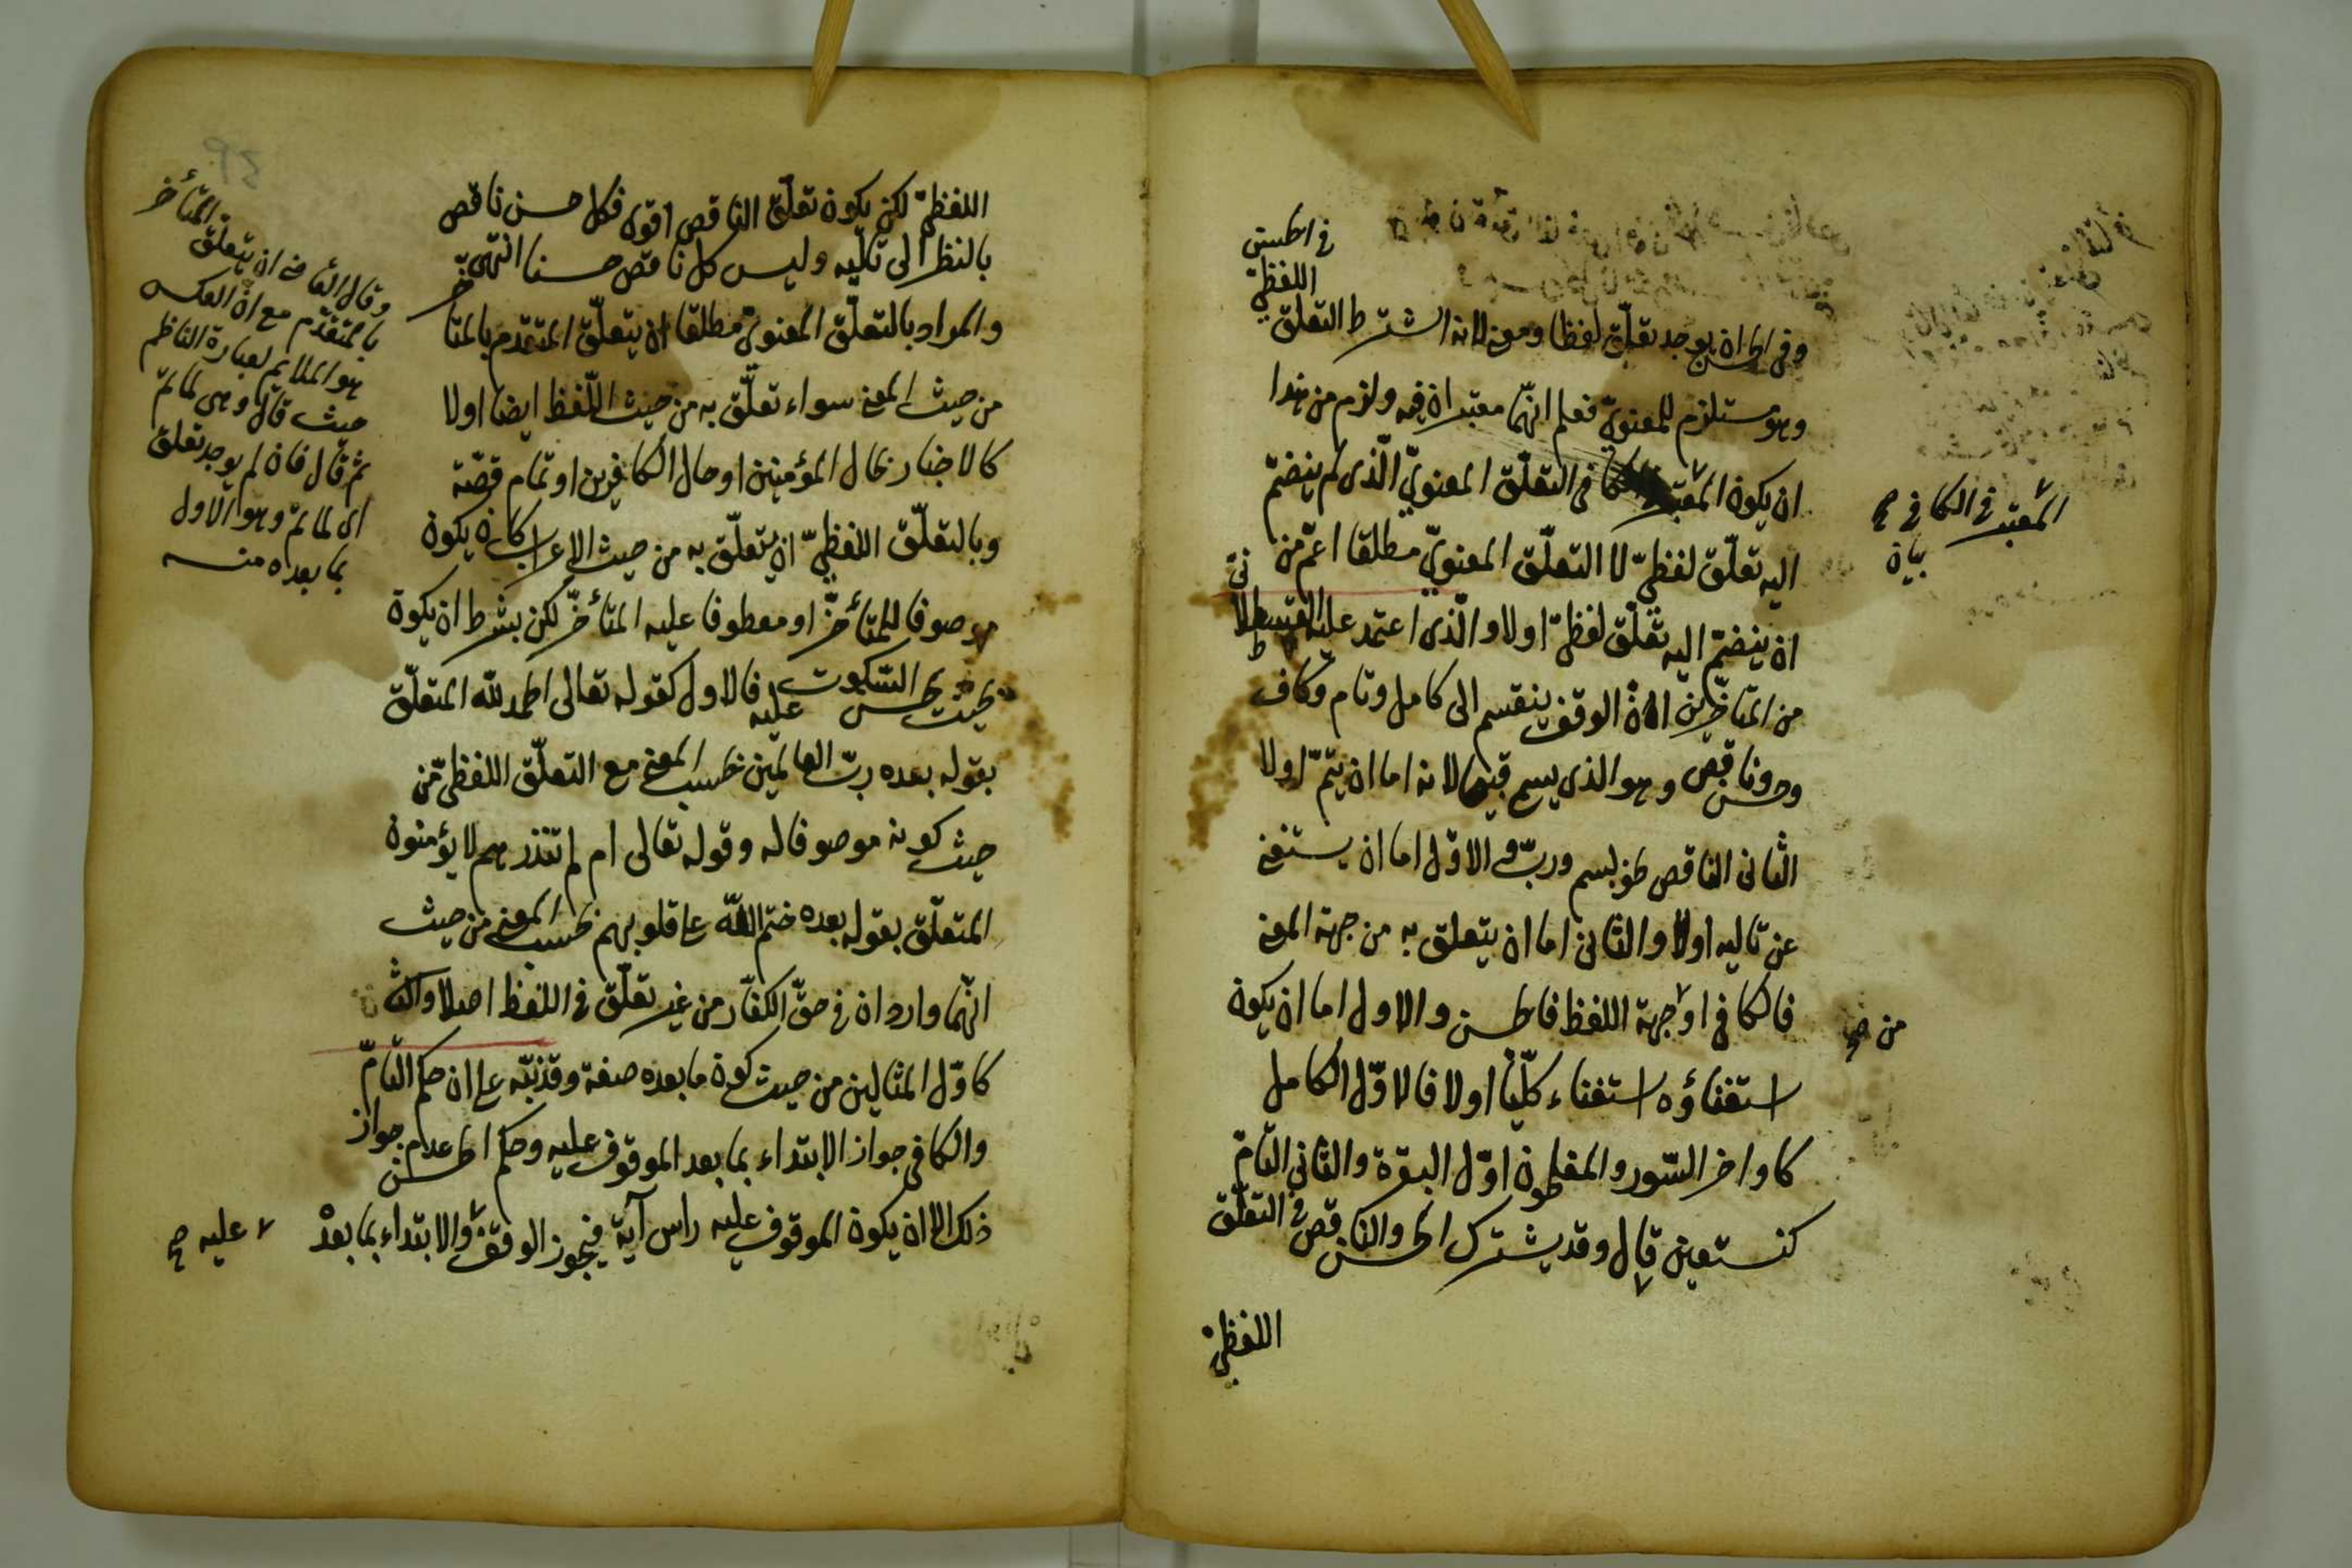 في الحسن
اللفظيّ
وفي الحسن ان يوجد تعلّق لفظا ومعنى لانه اشترط التعلق
وهو مستلزم للمعنويّ فعلم انهّما معتبران فيه ولزم من هذا
ان يكون المعتبر في التعلّق المعنويّ الّذي لم ينضمّ
المعتبر في الكافي صح
بيان
اليه تعلّق لفظيّ لا التعلّق المعنويّ مطلقا اعمّ من
ان ينضمّ اليه تعلّق لفظيّ اولا والّذي اعتمد عليه القسطلاني
من المتاخّرين انّ الوقف ينقسم الى كامل وتام وكاف
وحسن وناقص وهو الذي يسمى قبيحا لانه اما ان يتمّ اولا
الثاني الناقص نحو بسم وربّ والاوّل اما ان يستغنى
عن تاليه اولا والثاني اما ان يتعلق به من جهة المعنى
فالكافي او جهة اللفظ فالحسن والاول اما ان يكون
من صح
استغناؤه استغناء كلّيّا اولا فالاوّل الكامل
كاواخر السّور والمفلحون اوّل البقرة والثاني التامّ
كنستعين قال وقد يشترك الحسن والناقص في التعلّق
اللفظيّ
اللفظيّ لكن يكون تعلّق الناقص اقوى فكل حسن ناقص
بالنظر الى تاليه وليس كل ناقص حسنا انتهى
والمراد بالتعلّق المعنويّ مطلقا ان يتعلّق المتقدم بالمتاخّر
من حيث المعنى سواء تعلّق به من حيث اللّفظ ايضا اولا
كالاخبار بحال المؤمنين او حال الكافرين او تمام قصّة
وبالتعلّق اللفظيّ ان يتعلّق به من حيث الاعراب كان يكون
موصوفا للمتأخّر او معطوفا عليه المتأخّر لكن بشرط ان يكون
بحيث يحسن السّكوت عليه فالاول كقوله تعالى الحمد لله المتعلّق
بقوله بعده ربّ العالمين بحسب المعنى مع التعلّق اللفظيّ من
حيث كونه موصوفا له وقوله تعالى ام لم تنذرهم لا يؤمنون
المتعلّق بقوله بعده ختم الله على قلوبهم بحسب المعنى من حيث
انهّما واردان في حقّ الكفّار من غير تعلّق في اللفظ اصلا والثاني
كاوّل المثالين من حيث كون ما بعده صفة وقد نبّه على ان حكم التّامّ
والكافي جواز الابتداء بما بعد الموقوف عليه وحكم الحسن عدم جواز
ذلك الا ان يكون الموقوف عليه راس آية فيجوز الوقف والابتداء بما بعده
عليه صح
وقال القا في ان يتعلق المتأخر
بالمتقدّم مع انّ العكس
هو الملائم لعبارة الناظم
حيث قال وهي لما تمّ
ثم قال فان لم يوجد تعلق
اي لما تمّ وهو الاول
بما بعده منه